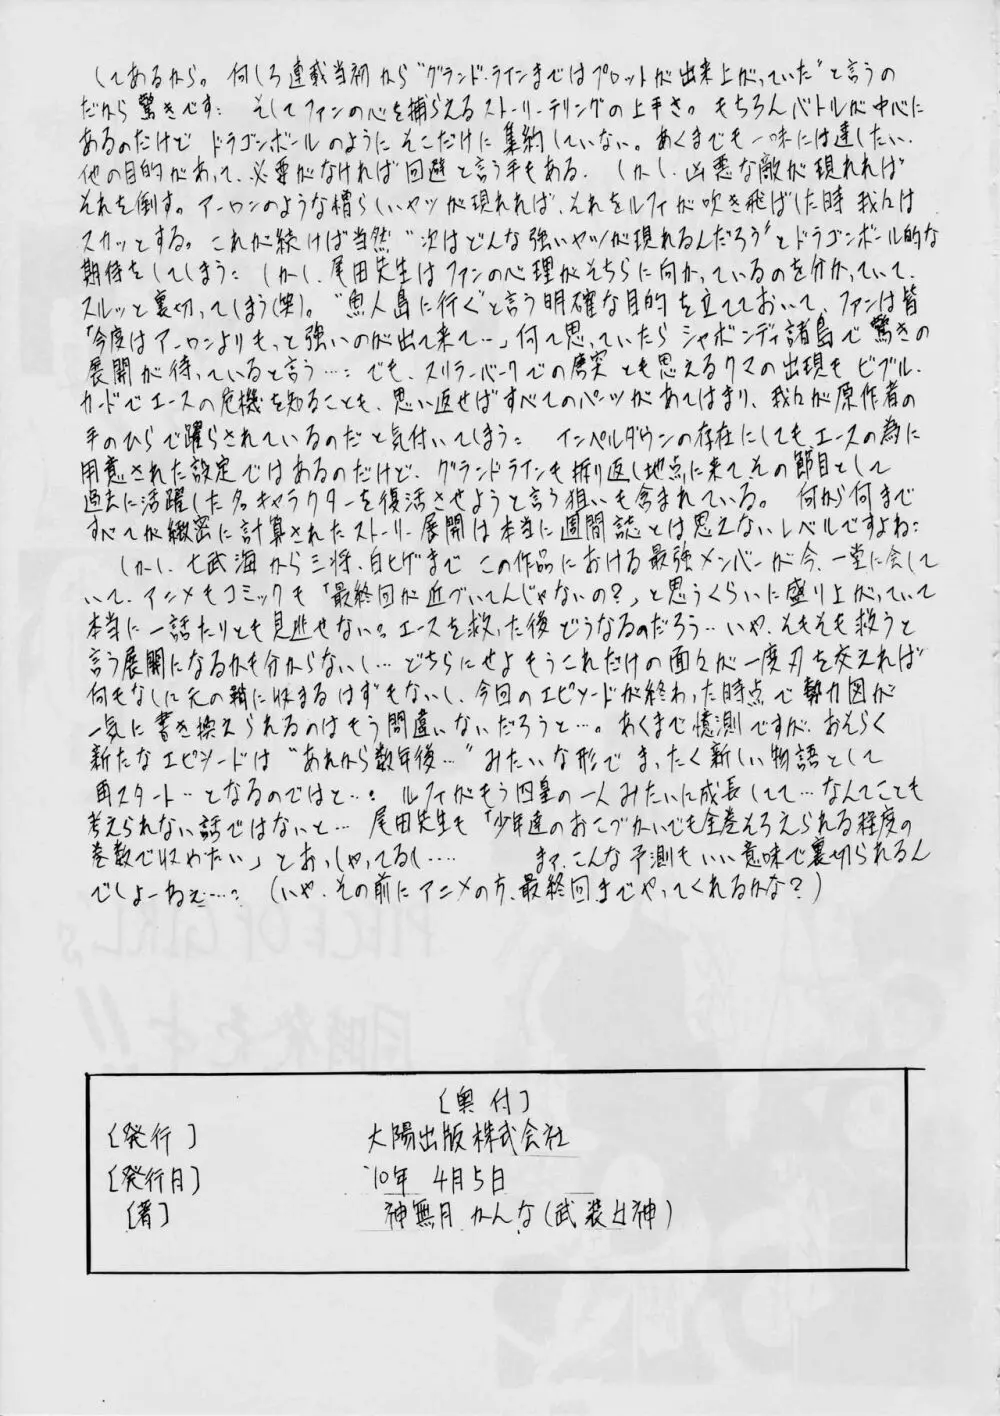 してあるから。何しろ連載当初から“グランド・ラインまではプロットが出来上がっていた”と言うの
だから驚きです: そしてファンの心を捕らえるストーリーテリングの上手さ。もちろんバトルが中心に
あるのだけど ドラゴンボールのように そこだけに集約していない。あくまでも一味には達したい、
他の目的があって、必要がなければ回避と言う手もある. しかし、凶悪な敵が現れれば
それを倒す。アーロンのような憎らしいヤツが現れれば、それをルフィが吹き飛ばした時 我々は
スカッとする。これが続けば当然“次はどんな強いヤツが現れるんだろう”とドラゴンボール的な
期待をしてしまう: しかし、尾田先生はファンの心理がそちらに向かっているのを分かっていて、
スルッと裏切ってしまう(笑)。“魚人島に行く”と言う明確な目的を立てておいて、ファンは皆
「今度はアーロンよりもっと強いのが出て来て…」何て思っていたら シャボンディ諸島で驚きの
展開が待っていると言う…: でも、スリラーバークでの唐突とも思えるクマの出現も ビブル・
カードでエースの危機を知ることも、思い返せばすべてのパーツがあてはまり、我々が原作者の
手のひらで躍らされているのだと気付いてしまう: インペルダウンの存在にしても、エースの為に
用意された設定ではあるのだけど、グランドラインも折り返し地点に来てその節目として
過去に活躍した名キャラクターを復活させようと言う狙いも含まれている。 何から何まで
すべてが緻密に計算されたストーリー展開は本当に週間誌とは思えないレベルですよね:
しかし、七武海から三将、白ヒゲまで この作品における最強メンバーが今、一堂に会して
いて、アニメもコミックも「最終回が近づいてんじゃないの?」と思うくらいに盛り上がっていて
本当に一話たりとも見逃せない。エースを救った後どうなるのだろう‥いや、そもそも救うと
言う展開になるかも分からないし… どちらにせよもうこれだけの面々が一度刃を交えれば
何もなしに元の鞘に収まるはずもないし、今回のエピソードが終わった時点で勢力図が
一気に書き換えられるのはもう間違いないだろうと…。あくまで憶測ですが、おそらく
新たなエピソードは“あれから数年後…”みたいな形でまったく新しい物語として
再スタート…となるのではと…: ルフィがもう四皇の一人みたいに成長してて…なんてことも
考えられない話ではないと… 尾田先生も「少年達のおこづかいでも全巻そろえられる程度の
巻数で収めたい」とおっしゃってるし…. まァ、こんな予測もいい意味で裏切られるん
でしょーねぇ…: (いや、その前にアニメの方、最終回までやってくれるかな?)
PIECE OF GIRLs
同時発売です!!
〔奥付〕
〔発行〕 大陽出版株式会社
〔発行日〕 '10年 4月5日
〔著〕 神無月かんな(武装女神)